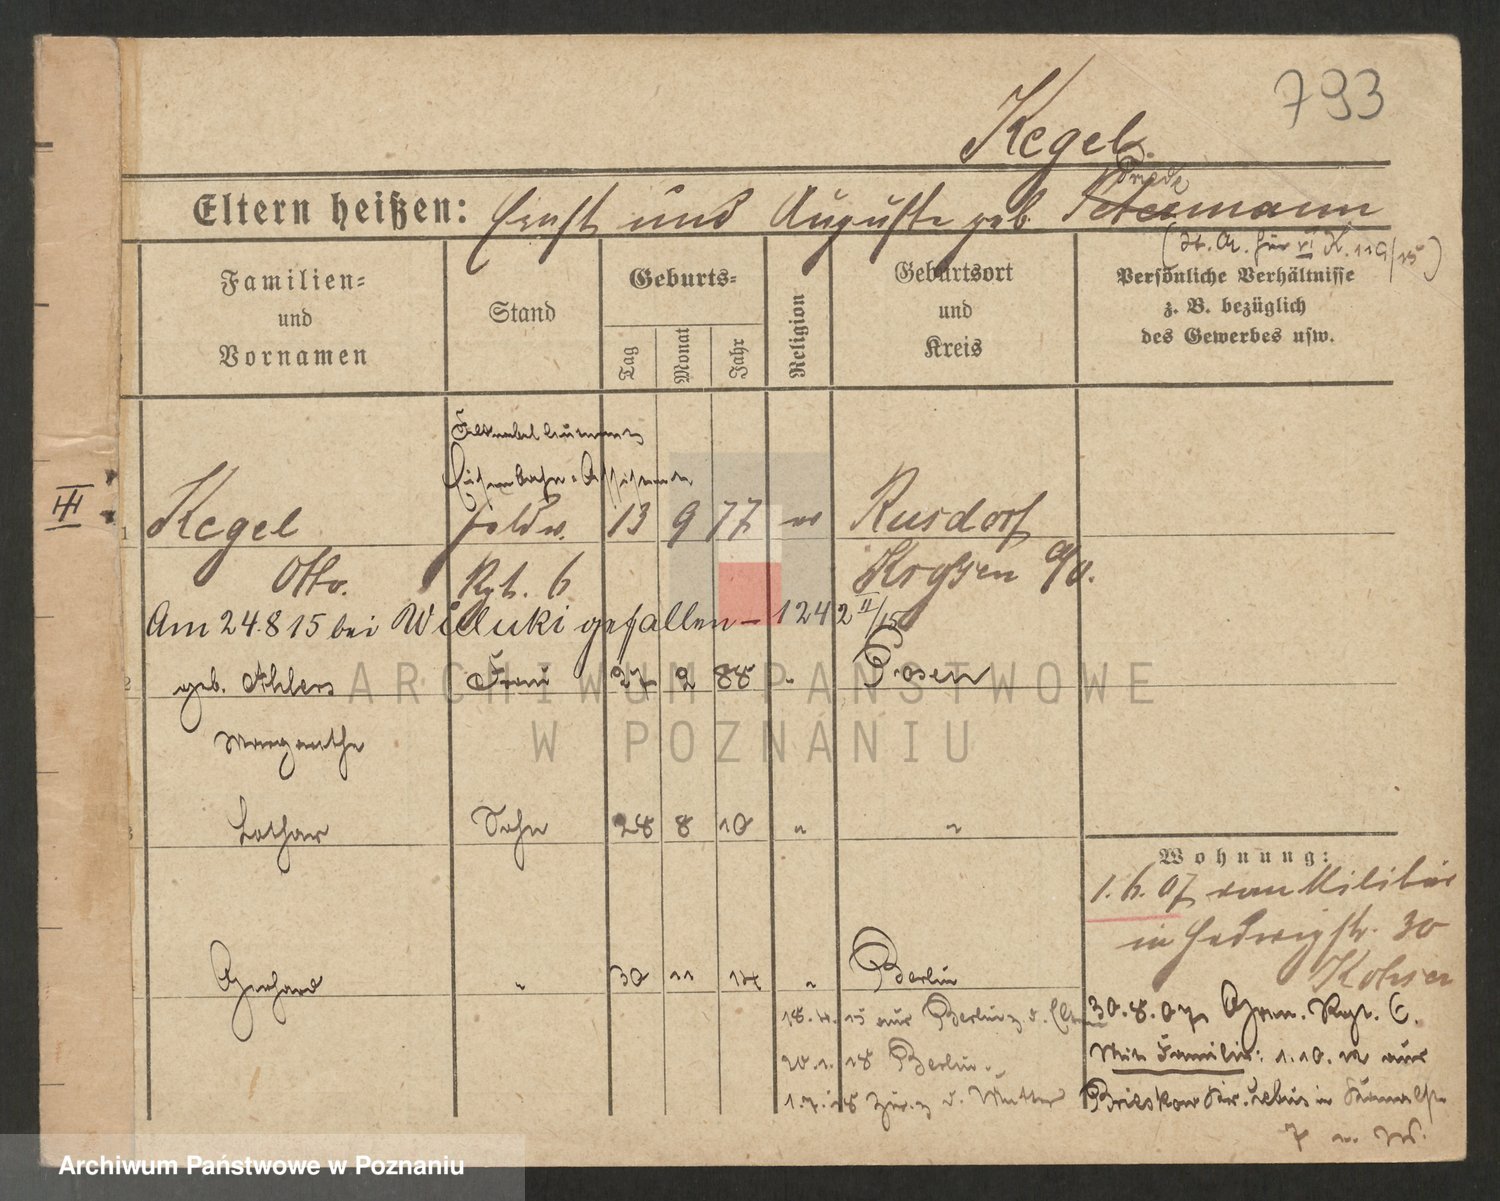 793
Kegel.
Friede
Eltern heißen: Ernst und Auguste geb. Petermann
(St. A. für VI K. 119/15)
Familien= und Vornamen
Stand
Geburts=
Tag
Monat
Jahr
Religion
Geburtsort und Kreis
Persönliche Verhältnisse
z. B. bezüglich
des Gewerbes usw.
Eisenbahn-Assistent
III
1 Kegel Feldw. 13 9 77 ev Rusdorf
Otto. Rgt. 6 Krossen a/O.
Am 24.8 15 bei Wiluki gefallen – 1242 II/15
2 geb. Ahlers Frau 27 2 88 " Posen
Margarethe
3 Lothar Sohn 28 8 10 " "
Wohnung:
1. 6. 07 vom Militär
in Hedwigstr. 30
Gerhard " 30 11 14 " Berlin
18. 4. 15 aus Berlin z. d. Eltern
30. 8. 07 Gren. Rgt. 6.
20. 1. 18 Berlin
Mit Familie: 1. 10. 12 aus
1. 7. 18 zur. z. d. Mutter
Brieskow Kr. Lebus in
ARCHIWUM PAŃSTWOWE
W POZNANIU
Archiwum Państwowe w Poznaniu